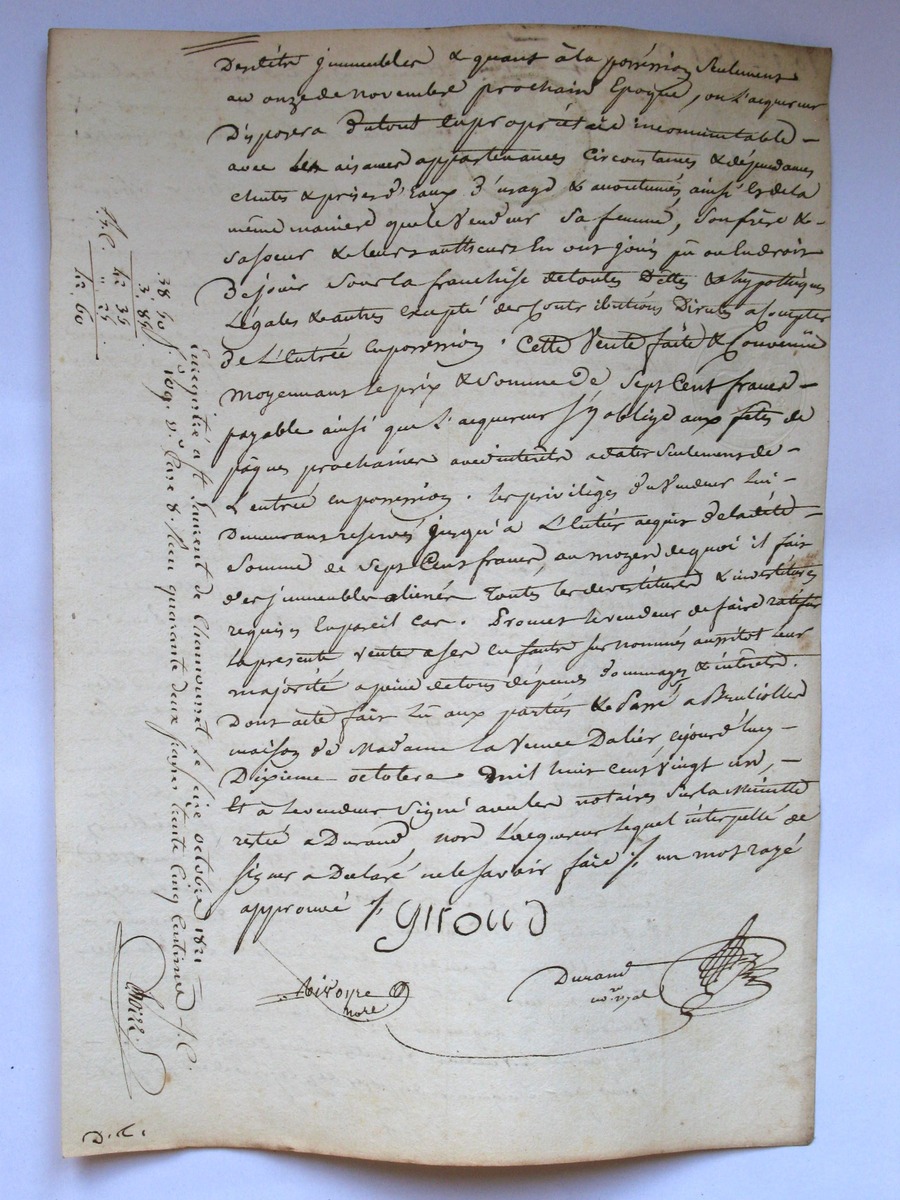 Desdits immeubles & quant à la possession seulement
au onze de novembre prochain Epoque, ou L'acquereur
Disposera dutout enpropriétaire incommutable –
avec les aisances appartenances Circonstances & dépendances
chutes & prises d'Eaux D'usage & accoutumés ainsi & de la
même maniere que le Vendeur sa femme, son frère &
sa soeur & leurs autheurs En ont joui pu ou du droit
De jouir sous la franchise de toutes Dettes & hypothèques
Légales & autres Excepté des Contributions Directes a Compter
de L'Entrée en possession. Cette Vente faite & Convenüe
moyennant le prix & Somme De Sept Cent francs –
payable ainsi que L'acquereur s'y oblige aux fêtes de
pâques prochaines avec intérêts a dater seulement de –
L'entrée en possession. les privilèges du Vendeur lui –
Demeurans reservés jusqu'à L'Entier acquit de la dite –
Somme de Sept Cent francs, au moyen de quoi il fait
d'es immeubles aliénés Toutes les devestitures & investitures
requises En pareil Cas. Promet le vendeur de faire ratifier
la présente vente a ses Enfants sus nommés aussitôt leur
majorité a peine de tous dépens dommages & intérêts.
Dont acte fait Lû aux parties & Passé a
maison De Madame La Veuve Dalier cejourd'huy –
Dixieme octobre mil huit cent vingt un, –
Et a Le vendeur Signé avec les notaires Sur la Minutte
restée a Durand, non L'acquereur lequel interpellé de
signer a Déclaré ne le Savoir faire /. un mot rayé
approuvé /.
Giroud
Durand
nore
Enregistré a St Laurent de Chamousset le seize octobre 1821
f° 109. v° Case 8. Recu quarante deux francs trente Cinq Centimes
38 50
3. 85
42 35
" 25
42. 60
D. R.